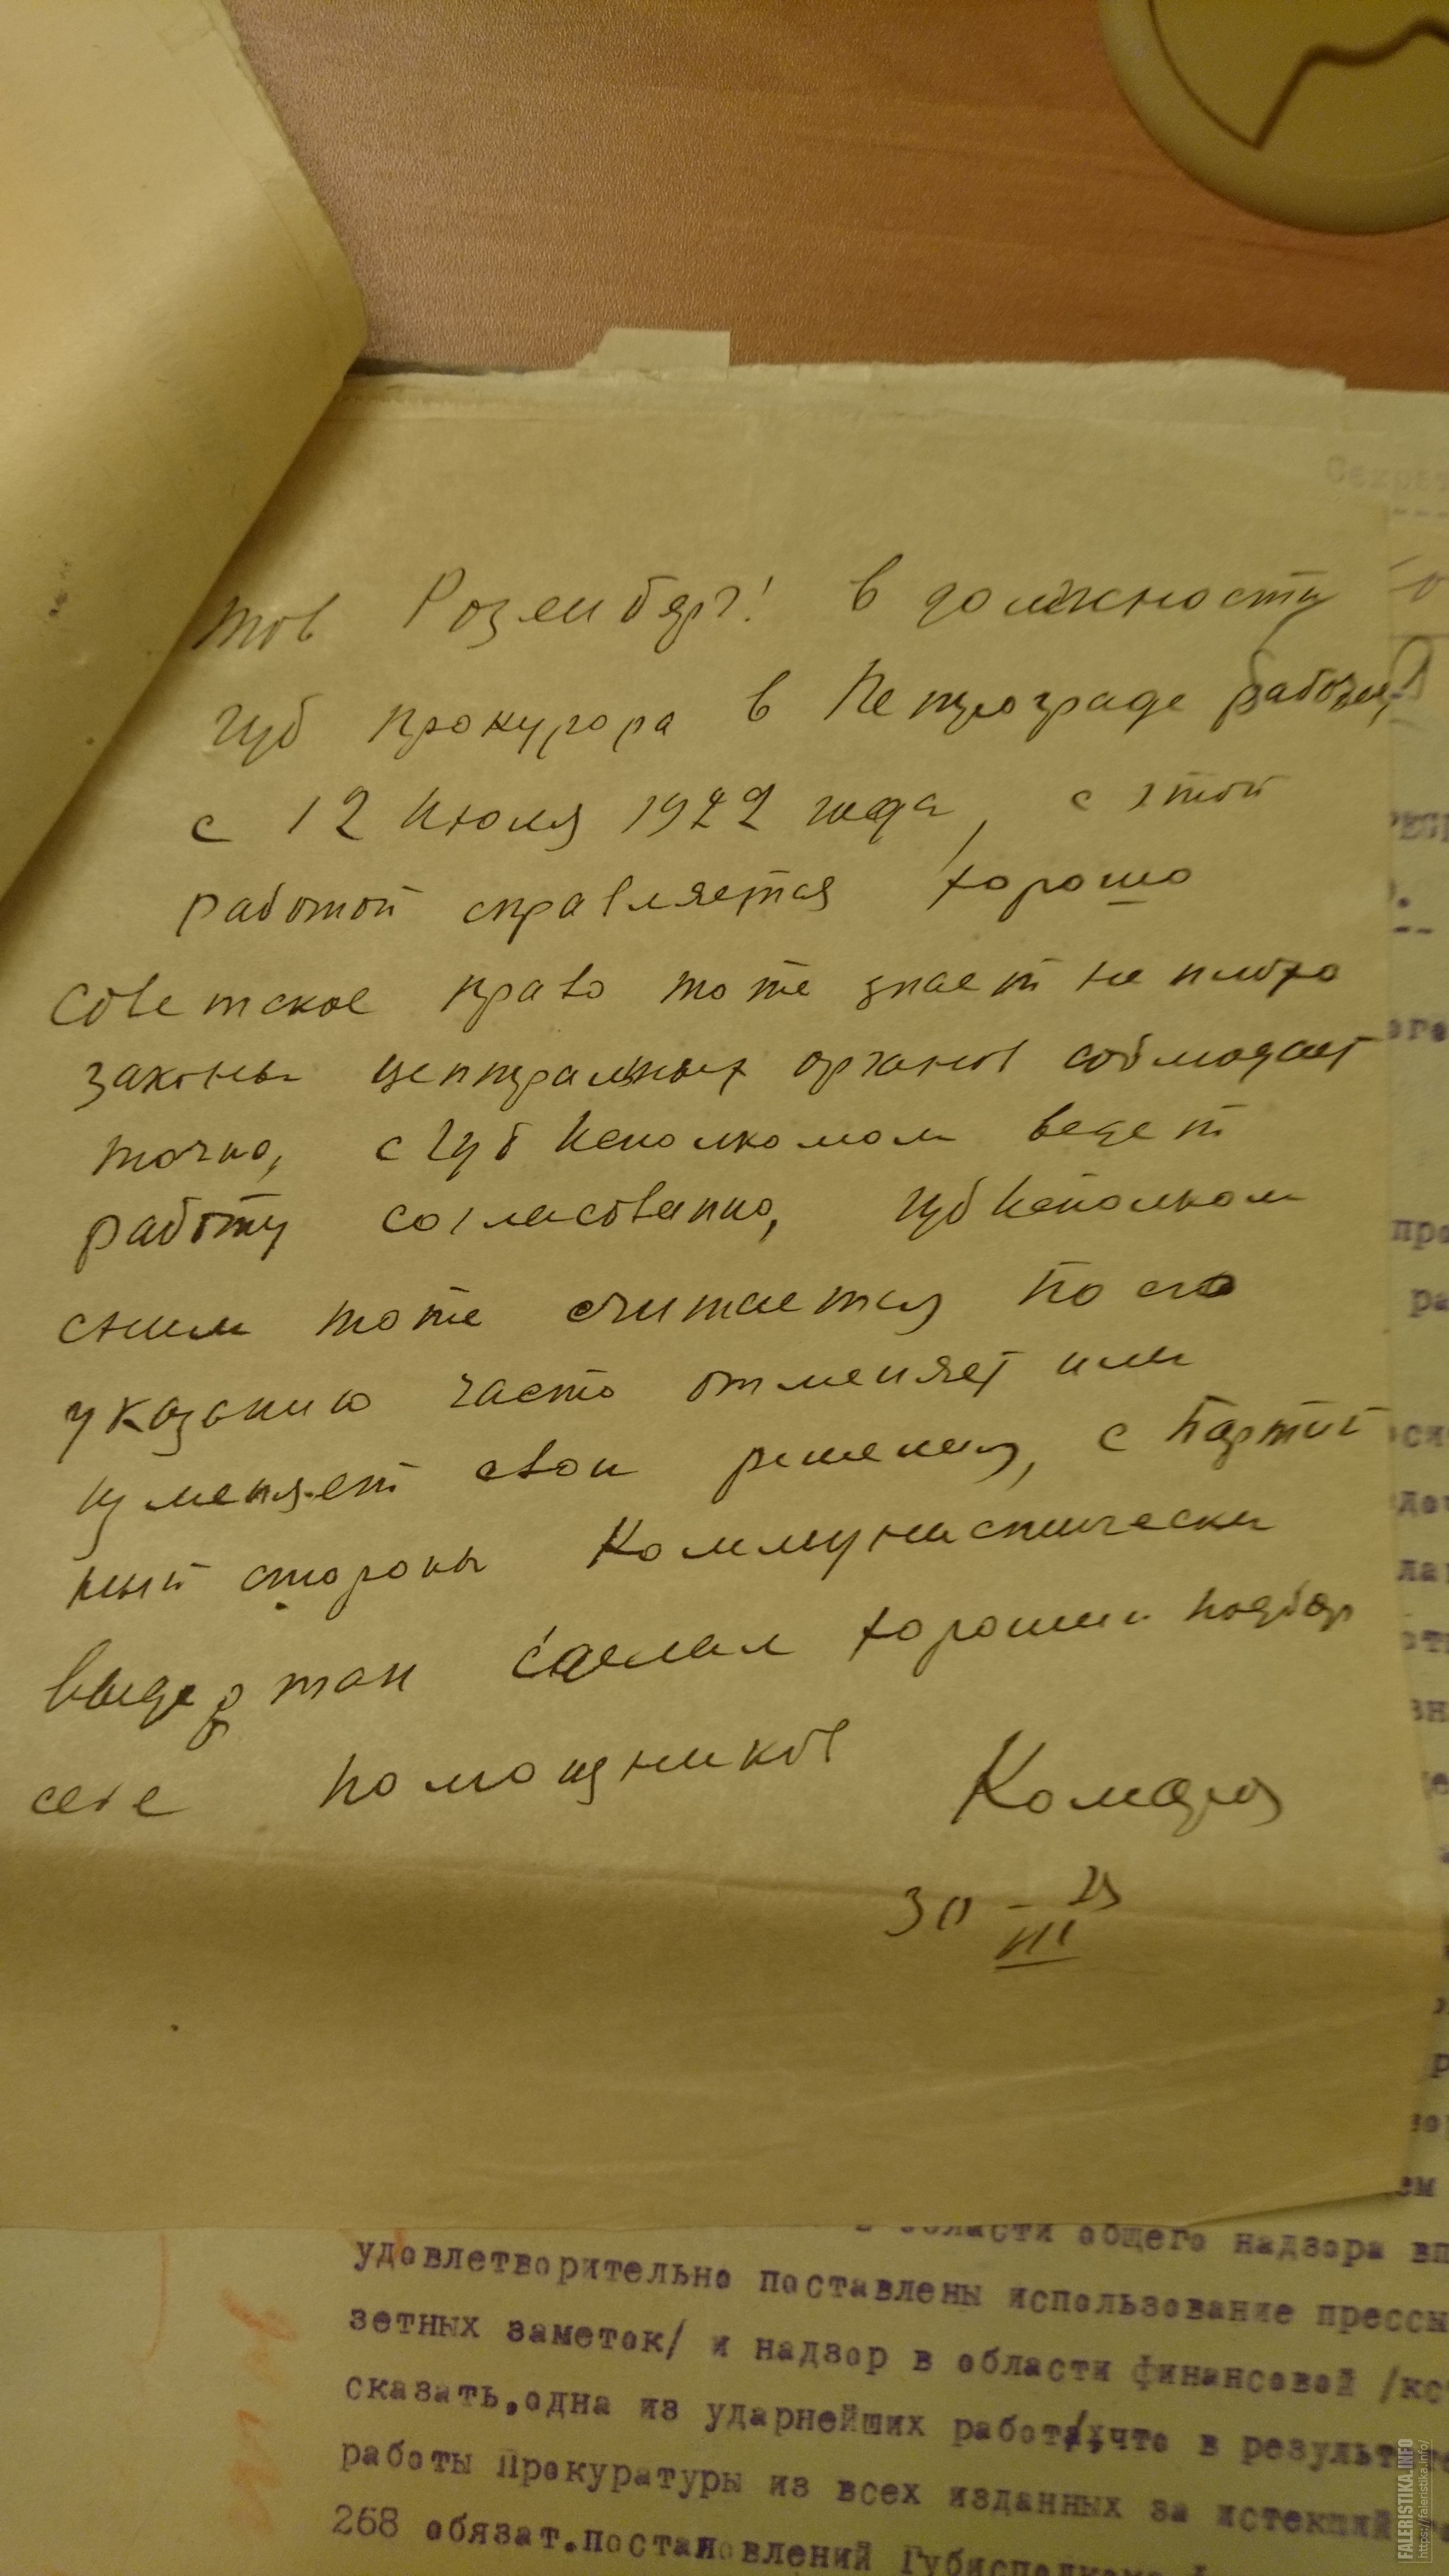 Секрет
тов Розенберг! в должности
губ прокурора в Петрограде работает
с 12 Июля 1922 года, с этой
работой справляется хорошо
Советское право тоже знает не плохо
законы центральных органов соблюдает
точно, с Губ Исполкомом ведет
работу согласованно, Губ Исполком
сним тоже считается по его
указанию часто отменяет или
изменяет свои решения, с Партий
ный стороны Коммунистически
выдержан сделал хороший подбор
себе помощников Комаров
30 - 23
III
в области общего надзора вп
удовлетворительно поставлены использование прессы
зетных заметок/ и надзор в области финансовой /кс
сказать, одна из ударнейших работ/, что в результате
работы Прокуратуры из всех изданных за истекший
268 обязат.постановлений Губисполкома
FALERISTIKA.INFO
https://faleristika.info/